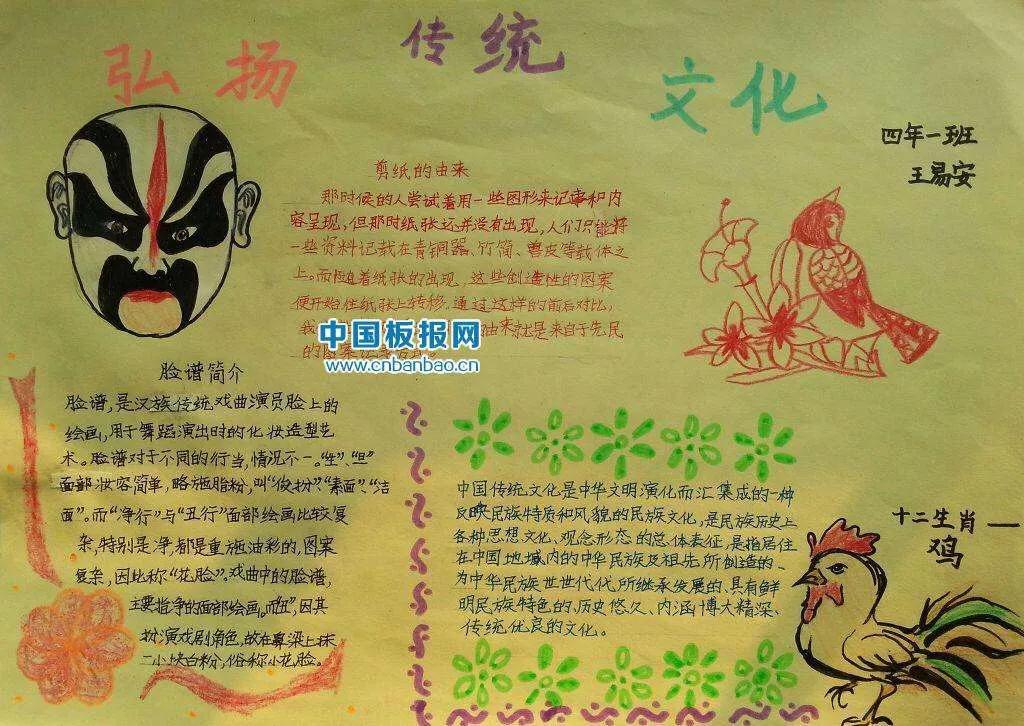 弘扬
传统
文化
四年一班
王易安
剪纸的由来
那时候的人尝试着用一些图形来记事和内
容呈现,但那时纸张还并没有出现,人们只能将
一些资料记载在青铜器、竹简、兽皮等载体之
上。而随着纸张的出现,这些创造性的图案
便开始往纸张上转移。通过这样的前后对比,
我 由来就是来自于先民
的图案记
中国板报网
www.cnbanbao.cn
脸谱简介
脸谱,是汉族传统戏曲演员脸上的
绘画,用于舞蹈演出时的化妆造型艺
术。脸谱对于不同的行当,情况不一。“生”、“旦”
面部妆容简单,略施脂粉,叫“俊扮”、“素面”、“洁
面”。而“净行”与“丑行”面部绘画比较复
杂,特别是净,都是重施油彩的,图案
复杂,因此称“花脸”。戏曲中的脸谱,
主要指净的面部绘画。而“丑”,因其
扮演戏剧角色,故在鼻梁上抹
一小块白粉,俗称小花脸。
中国传统文化是中华文明演化而汇集成的一种
反映民族特质和风貌的民族文化,是民族历史上
各种思想文化、观念形态的总体表征,是指居住
在中国地域内的中华民族及祖先所创造的、
为中华民族世世代代所继承发展的、具有鲜
明民族特色的、历史悠久、内涵博大精深、
传统优良的文化。
十二生肖—
鸡